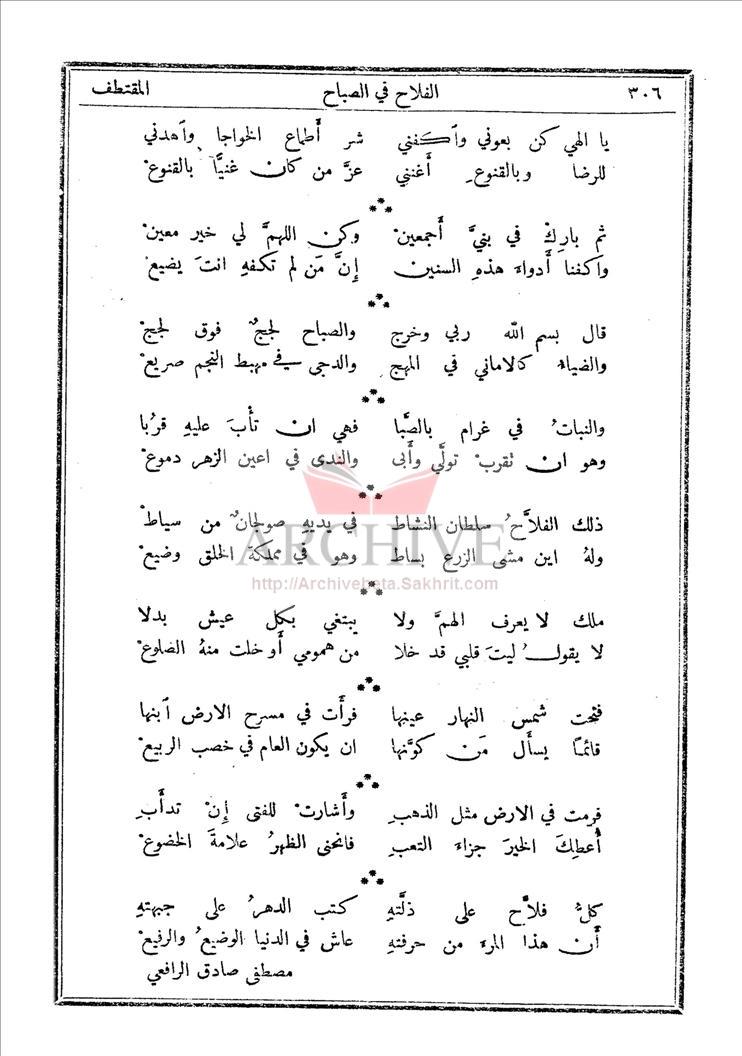 ٣٠٦ الفلاح في الصباح المقتطف
يا الهي كن بعوني وٱكفني شر أطماع الخواجا وٱهدني
للرضا وبالقنوعِ أغنني عزَّ من كان غنيًّا بالقنوعْ
ثم باركْ في بنيَّ أجمعينْ وكن اللهمَّ لي خير معينْ
واكفنا أدواءَ هذهِ السنين إنَّ مَن لم تكفهِ انتَ يضيعْ
قال بسم الله ربي وخرج والصباح لججٌ فوق لججْ
والضياءُ كالاماني في المهج والدجى في مهبط النجم صريعْ
والنباتُ في غرام بالصَّبا فهي ان تأبَ عليهِ قربا
وهو انْ تقربْ تولَّى وأبى والندى في اعين الزهر دموعْ
ذلك الفلاَّحُ سلطان النشاط في يديهِ صولجانٌ من سياطْ
ولهُ اين مشى الزرع بساط وهو في مملكة الخلق وضيعْ
ملك لا يعرف الهمَّ ولا يبتغي بكل عيش بدلا
لا يقول ليتَ قلبي قد خلا من همومي أو خلت منهُ الضلوعْ
فتحت شمس النهار عينها فرأت في مسرح الارض ٱبنها
قائمًا يسأل مَن كوَّنها ان يكون العام في خصب الربيعْ
فرمت في الارض مثل الذهبِ وأشارتْ للفتى إنْ تدأبِ
أُعطِكَ الخيرَ جزاءَ التعبِ فانحنى الظهرُ علامةَ الخضوعْ
كلُّ فلاَّح على ذلَّتهِ كتب الدهرُ على جبهتهِ
أن هذا المرءَ من حرفتهِ عاش في الدنيا الوضيعُ والرفيعْ
مصطفى صادق الرافعي
ARCHIVE
http://Archivebeta.Sakhrit.com